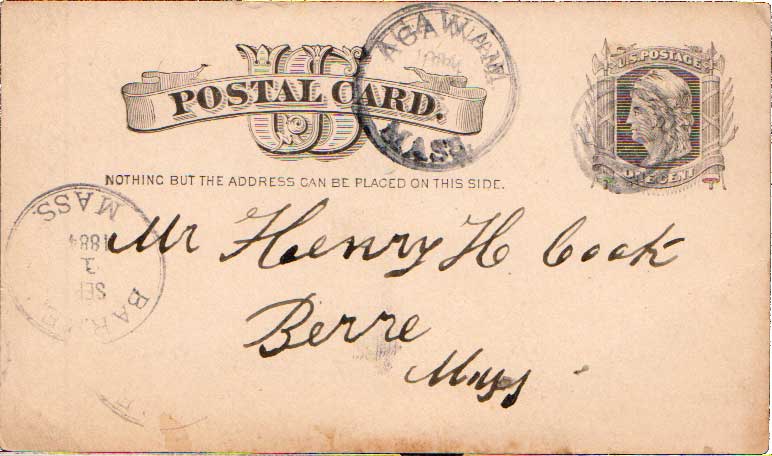 U.S. POSTAGE
ONE CENT
US
POSTAL CARD.
NOTHING BUT THE ADDRESS CAN BE PLACED ON THIS SIDE.
AGAWAM
MASS.
BARRE
SEP
1
1884
MASS.
Mr Henry H Cook
Berre
Mass